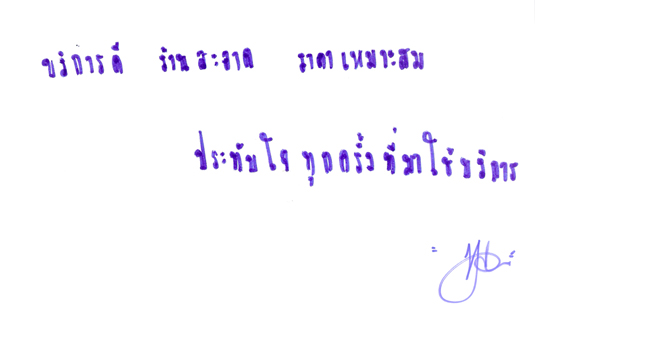 บริการดี ร้านสะอาด ราคาเหมาะสม
ประทับใจ ทุกครั้งที่มาใช้บริการ